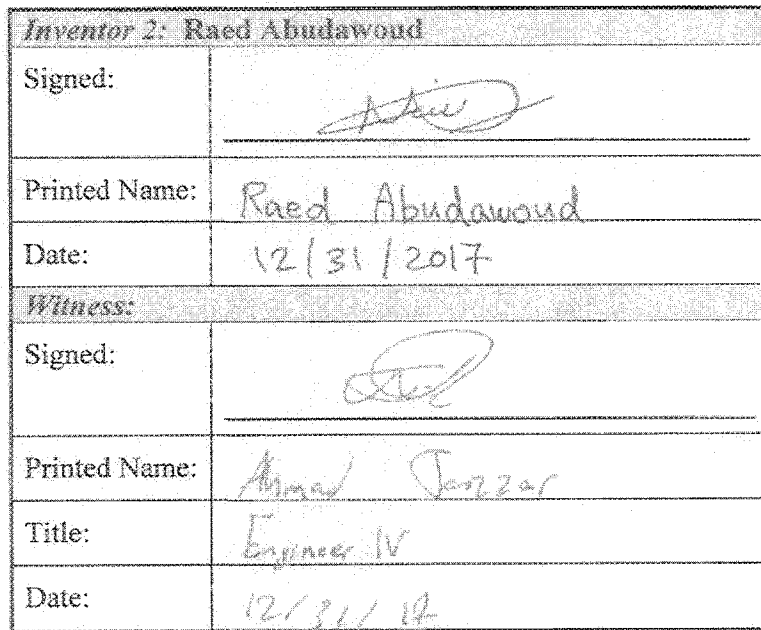 Inventor 2: Raed Abudawoud
Signed:
Printed Name: Raed Abudawoud
Date: 12/31/2017
Witness:
Signed:
Printed Name: Ahmad
Title: Engineer IV
Date: 12/31/17